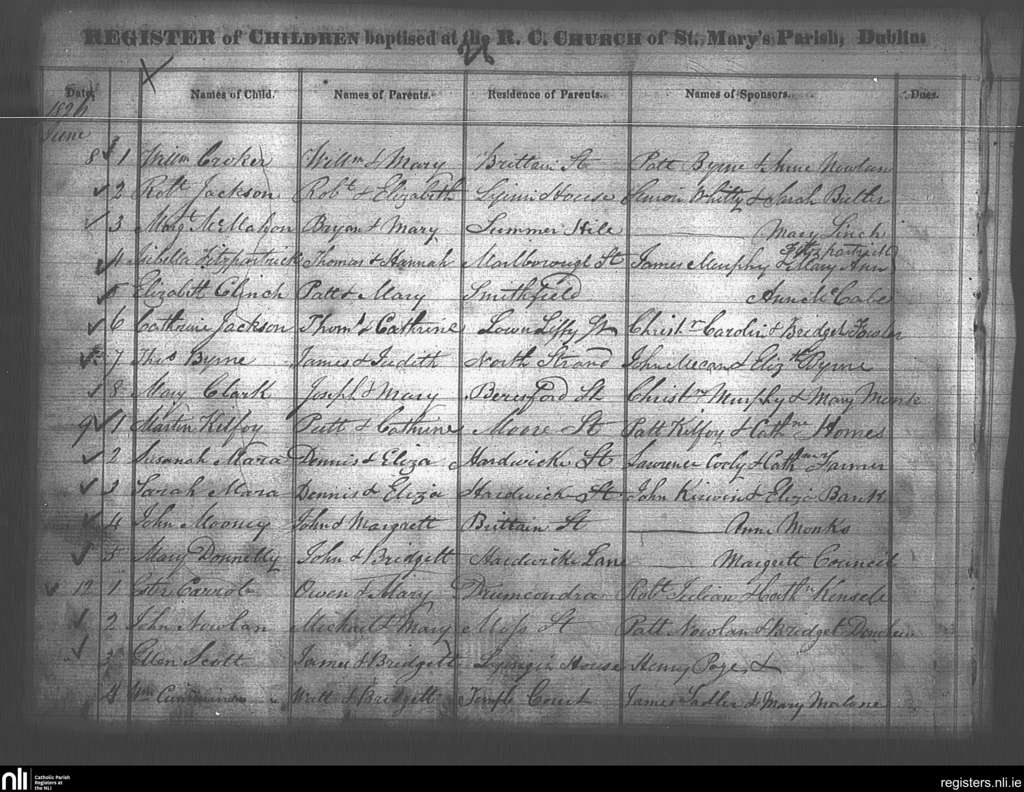 REGISTER of CHILDREN baptised at the R. C. CHURCH of St. Mary's Parish, Dublin:
Date. Names of Child. Names of Parents. Residence of Parents. Names of Sponsors. Dues.
1826
June
8 1 Willm Croker Willm & Mary Brittain St Patt Byrne & Anne Nowlan
2 Robt Jackson Robt & Elizabeth House Simon Whitty & Sarah Butler
3 Margt McMahon Bryan & Mary Summer Hill Mary Linch
4 Sibella Fitzpartrick Thomas & Hannah Marlborough St James Murphy & Mary Ann Fitzpartrick
5 Elizabeth Clinch Patt & Mary Smithfield Anne McCabe
6 Cathrine Jackson Thoms & Cathrine Lower Liffy St Christr Carolin & Bridget Fowler
7 Thos Byrne James & Judith North Strand John & Elizth Byrne
8 Mary Clark Joseph & Mary Beresford St Christr Murphy & Mary
9 1 Martin Kilfoy Patt & Cathrine Moore St Patt Kilfoy & Cathne Homes
2 Susanah Mara Dennis & Eliza Hardwicke St Lawrence & Cathne Farmer
3 Sarah Mara Dennis & Eliza Hardwick St John Kirwin & Eliza Bank
4 John Mooney John & Margrett Brittain St Anne Monks
5 Mary Donnelly John & Bridgett Hardwicke Lane Margrett Council
12 1 Carrol Owen & Mary Drumcondra Robt & Cathe
2 John Nowlan Michael & Mary Moss St Patt Nowlan & Bridget
3 Ellen Scott James & Bridgett House Henry Page &
4 Wm Willm & Bridgett Temple Court James Sadler & Mary Malone
nli Catholic Parish
Registers at
the NLI
registers.nli.ie